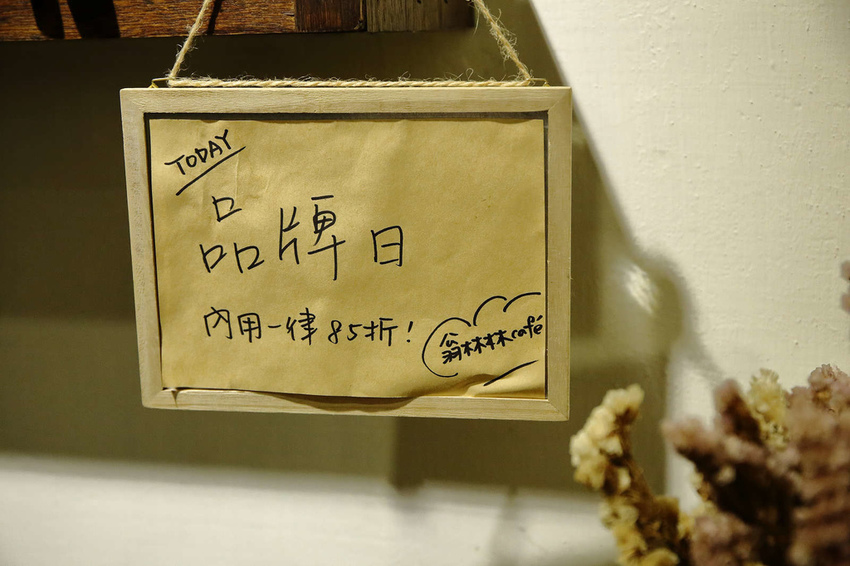 TODAY
品牌日
內用一律85折!
翁林林林café